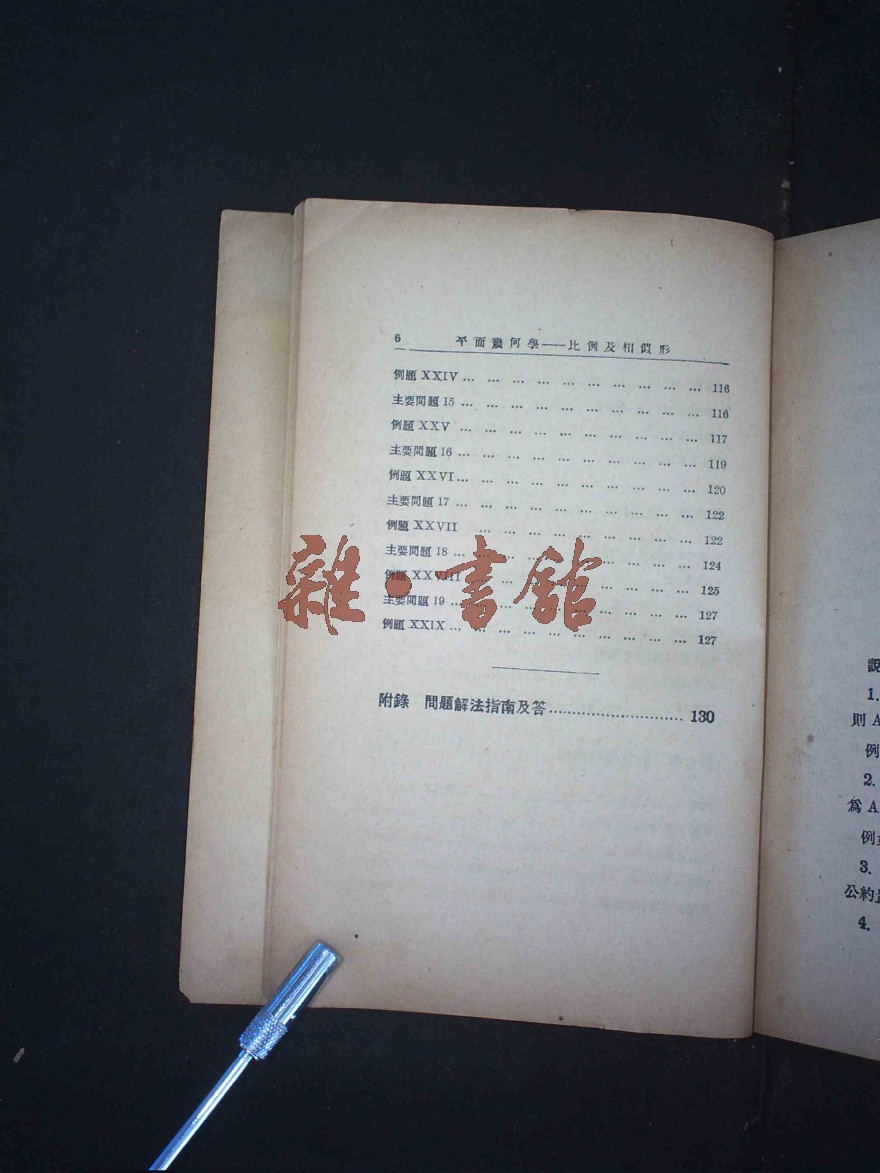 6 平面幾何學——比例及相似形
例題 XXIV ... ... ... ... ... ... ... ... ... ... 116
主要問題 15 ... ... ... ... ... ... ... ... ... ... 116
例題 XXV ... ... ... ... ... ... ... ... ... ... 117
主要問題 16 ... ... ... ... ... ... ... ... ... ... 119
例題 XXVI ... ... ... ... ... ... ... ... ... ... 120
主要問題 17 ... ... ... ... ... ... ... ... ... ... 122
例題 XXVII ... ... ... ... ... ... ... ... ... 122
主要問題 18 ... ... ... ... ... ... ... ... ... ... 124
例題 XXVIII ... ... ... ... ... ... ... ... ... 125
主要問題 19 ... ... ... ... ... ... ... ... ... ... 127
例題 XXIX ... ... ... ... ... ... ... ... ... ... 127
附錄 問題解法指南及答 ........................... 130
雜·書館
説
1.
則 A
例
2.
爲 A
例
3.
公約
4.